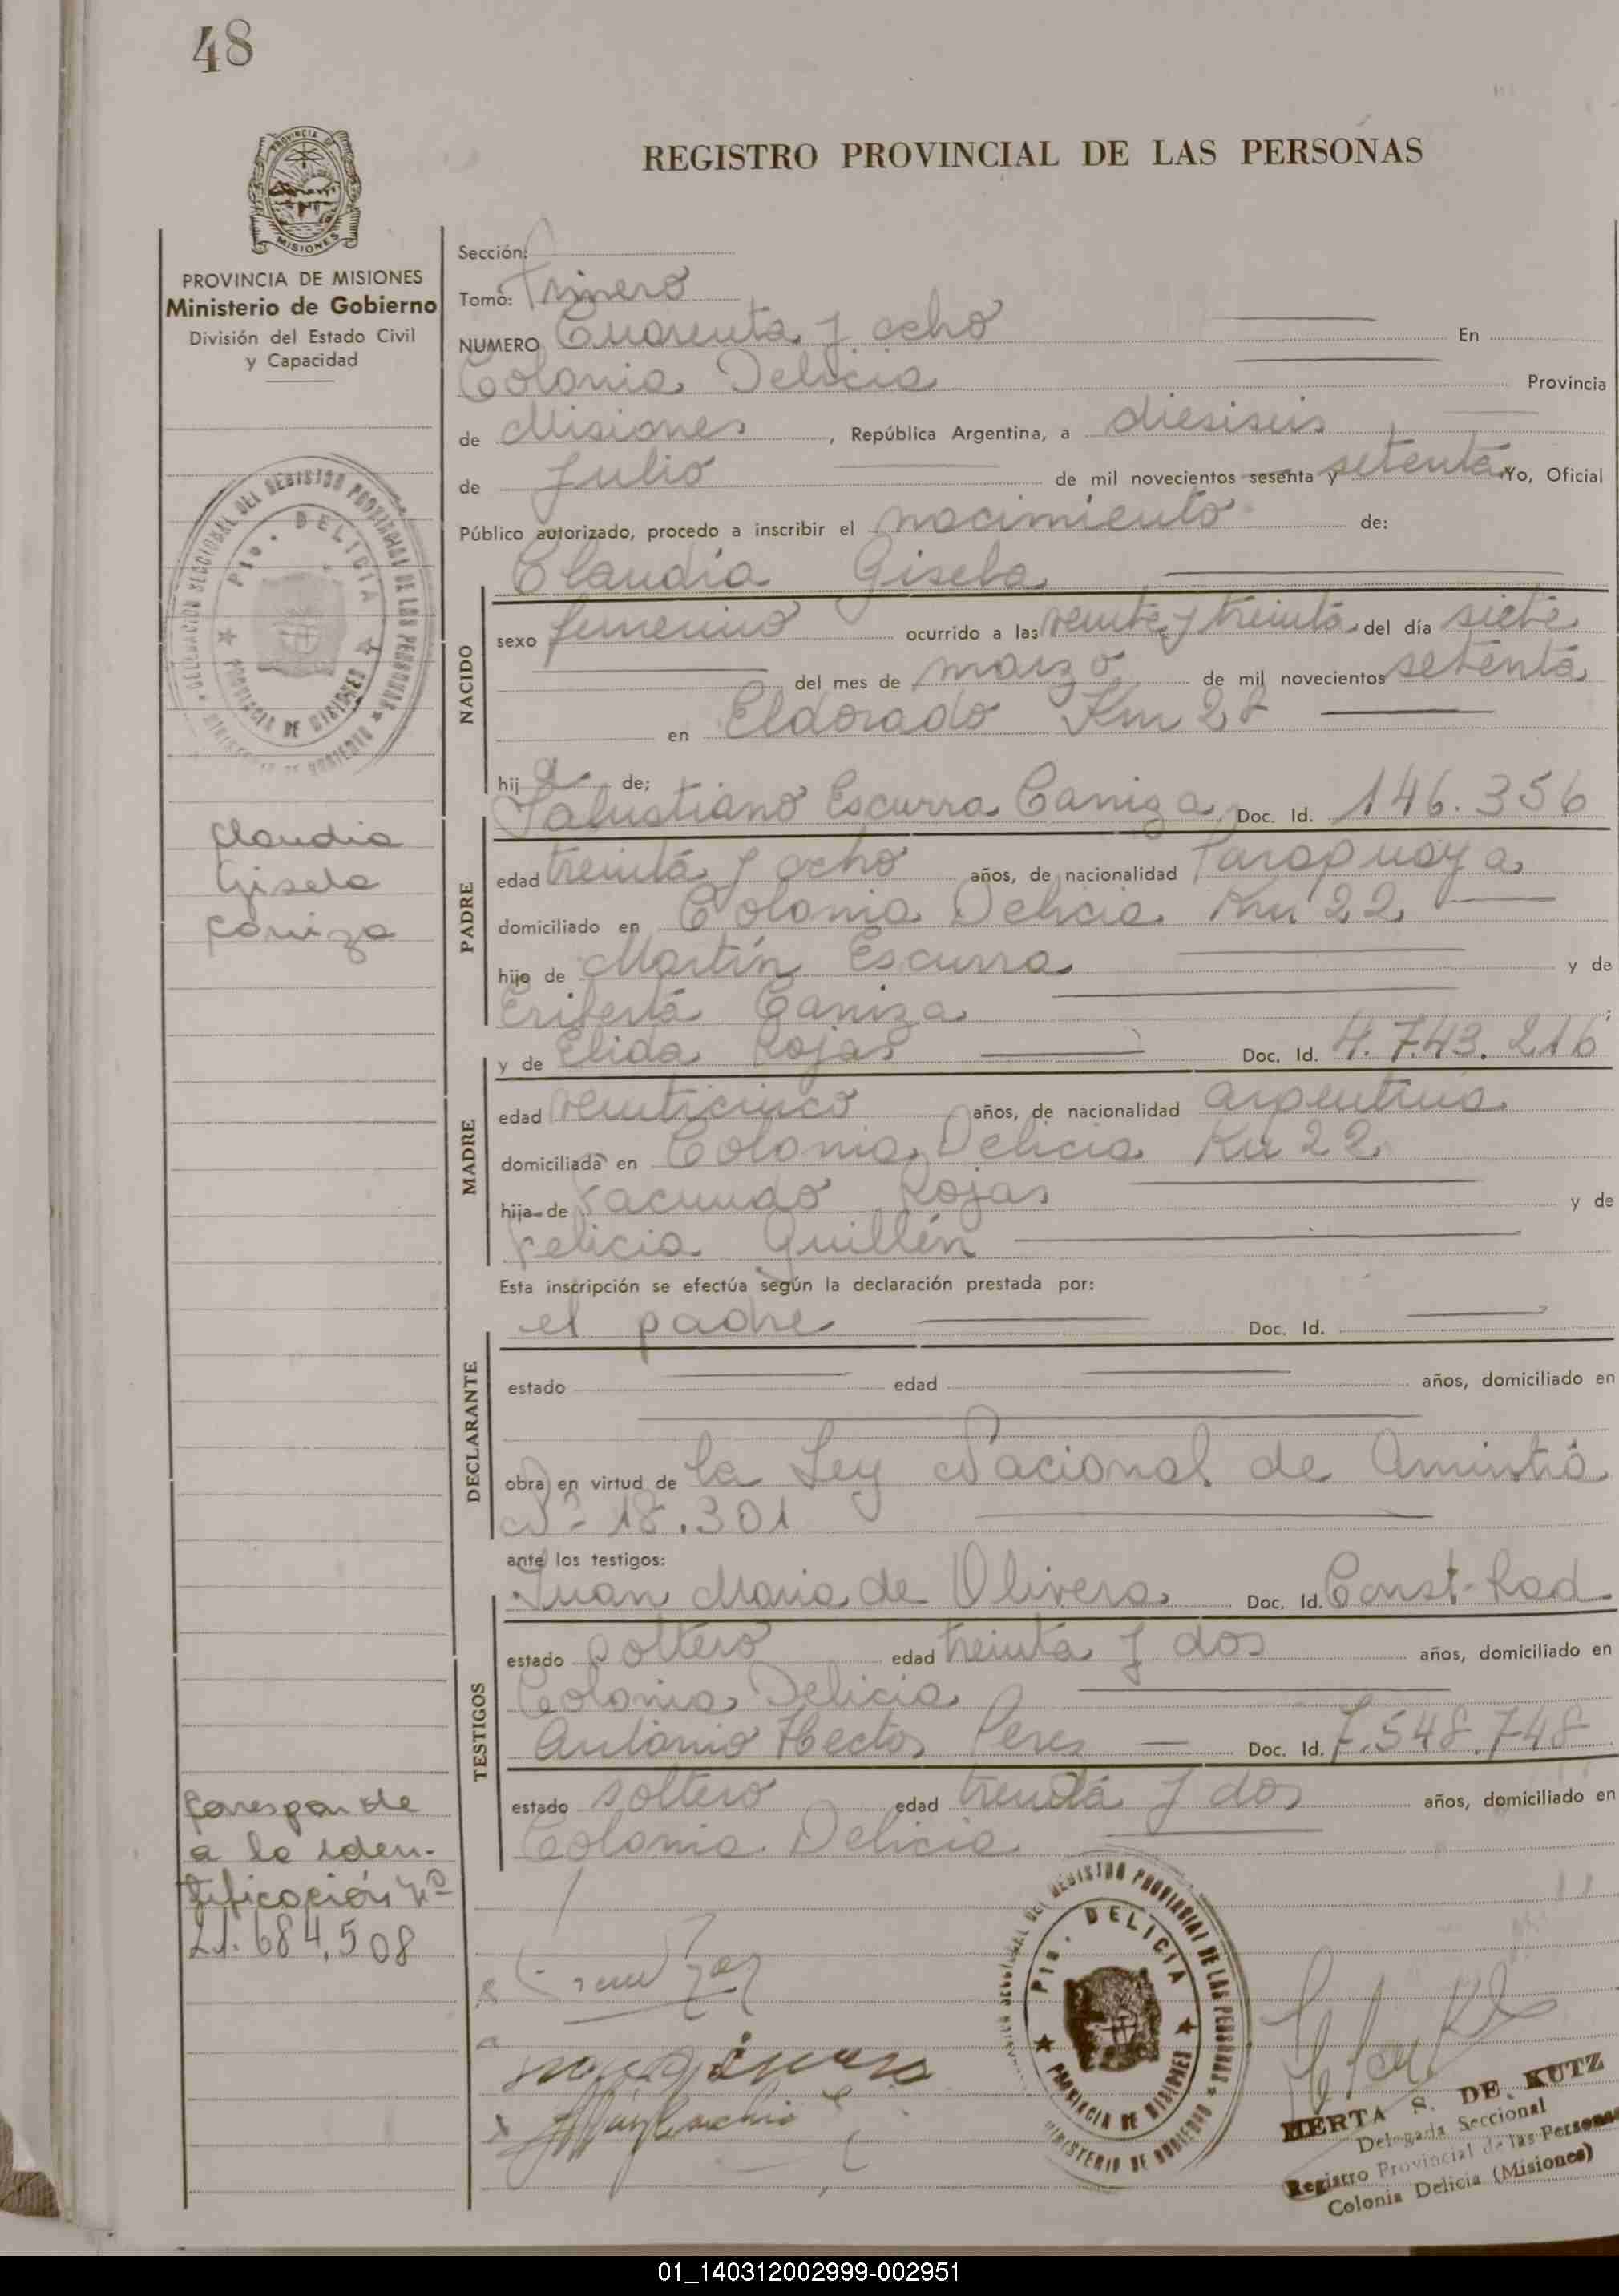 48
PROVINCIA DE
MISIONES
REGISTRO PROVINCIAL DE LAS PERSONAS
PROVINCIA DE MISIONES
Ministerio de Gobierno
División del Estado Civil
y Capacidad
Sección:
Tomo: Primero
NUMERO Cuarenta y ocho En
Colonia Delicia Provincia
de Misiones, República Argentina, a diesiseis
de Julio de mil novecientos sesenta y setenta Yo, Oficial
Público autorizado, procedo a inscribir el nacimiento de:
Claudia Gisela
NACIDO
sexo femenino ocurrido a las veinte y treinta del día siete
del mes de marzo de mil novecientos setenta
en Eldorado Km 28
hij a de;
Salustiano Escurra Caniza Doc. Id. 146.356
PADRE
edad treinta y ocho años, de nacionalidad Paraguaya
domiciliado en Colonia Delicia Km 22
hijo de Martín Escurra y de
Eriberta Caniza ;
y de Elida Rojas Doc. Id. 4.743.216
MADRE
edad veinticinco años, de nacionalidad argentina
domiciliada en Colonia Delicia Km 22
hija de Facundo Rojas y de
Felicia Guillén
Esta inscripción se efectúa según la declaración prestada por:
el padre Doc. Id.
DECLARANTE
estado edad años, domiciliado en
obra en virtud de la Ley Nacional de Amnistía
Nº 18.301
ante los testigos:
Juan Maria de Olivera Doc. Id. Const. Rad
TESTIGOS
estado soltero edad treinta y dos años, domiciliado en
Colonia Delicia
Antonio Hector Peres Doc. Id. 7.548.748
estado soltero edad treinta y dos años, domiciliado en
Colonia Delicia
Claudia
Gisela
Caniza
Coresponde
a la iden-
tificación Nº
21.684.508
DELEGACION SECCIONAL DEL REGISTRO PROVINCIAL DE LAS PERSONAS
MINISTERIO DE GOBIERNO
Pto. DELICIA
PROVINCIA DE MISIONES
REGISTRO PROVINCIAL DE LAS PERSONAS
MINISTERIO DE GOBIERNO
Pto. DELICIA
PROVINCIA DE MISIONES
HERTA S. DE KUTZ
Delegada Seccional
Registro Provincial de las Personas
Colonia Delicia (Misiones)
01_140312002999-002951